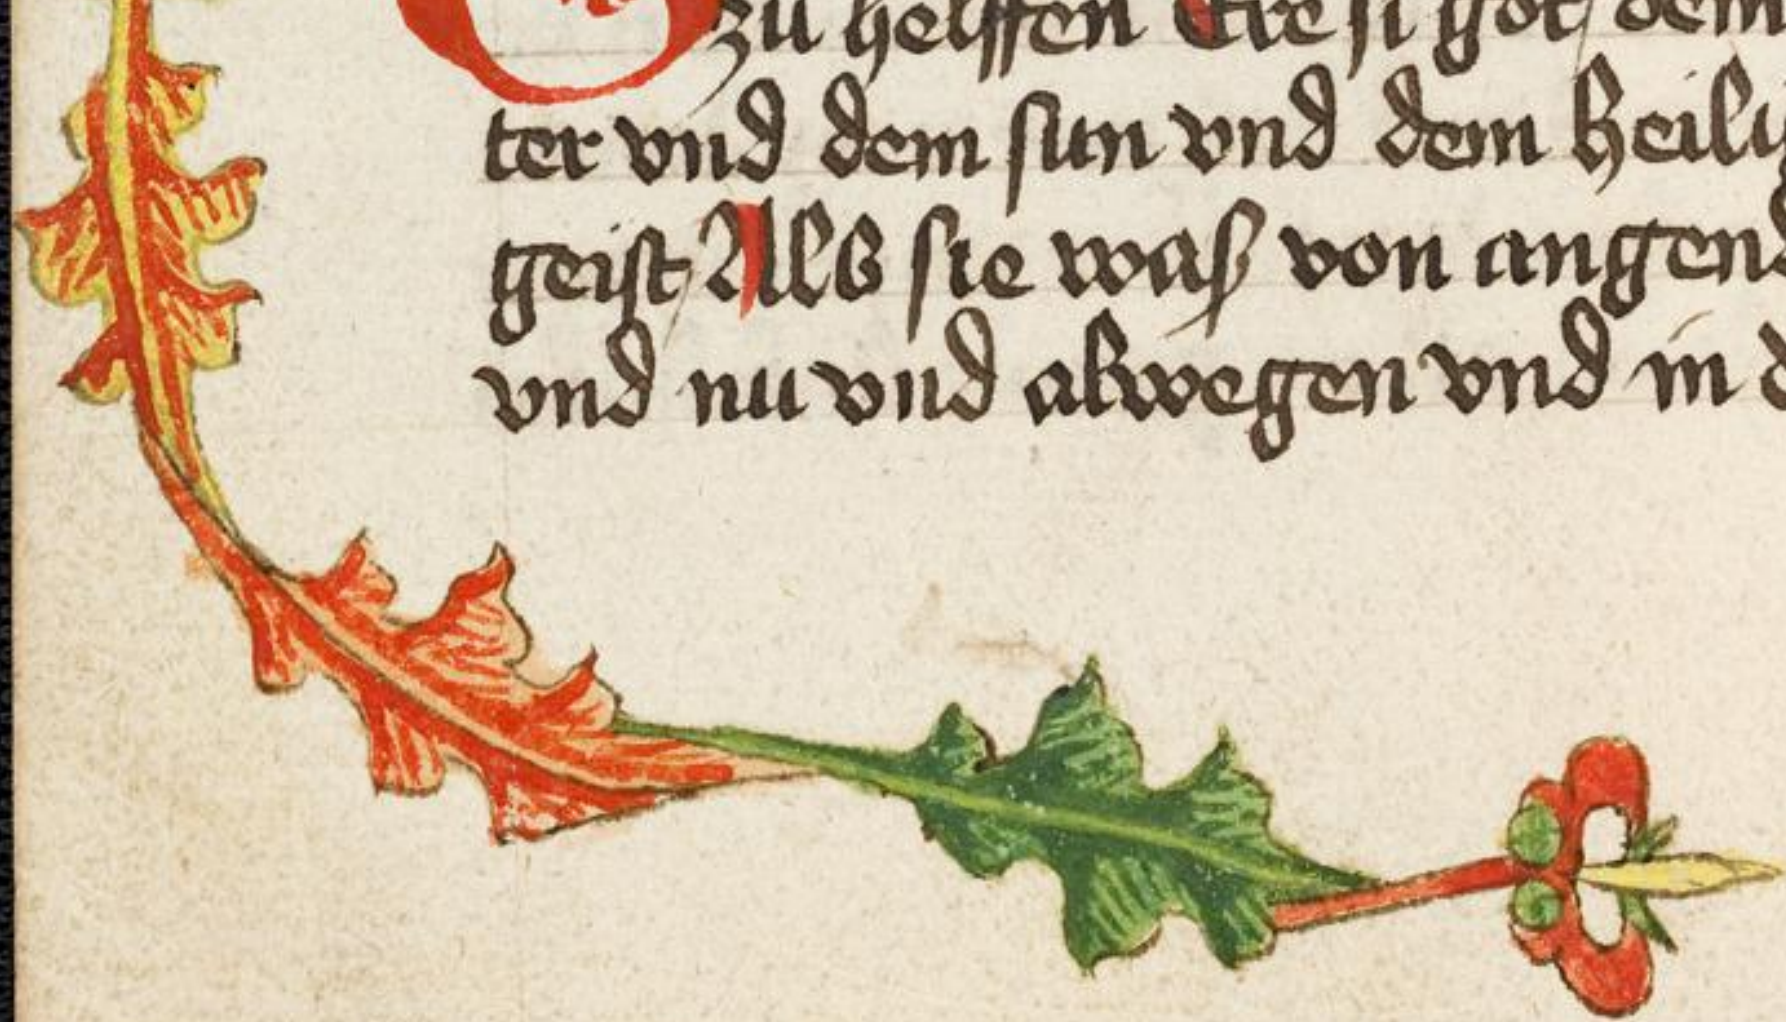 zu helffen Ere si got dem
ter vnd dem sun vnd dem heilig
geist Als sie was von angend
vnd nu vnd alwegen vnd in d